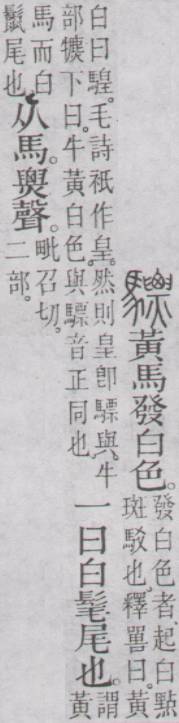 驃黃馬發白色。
發白色者、起白點
斑駁也。釋嘼曰。黃
白曰騜。毛詩秖作皇。然則皇卽驃與、牛
部犥下曰。牛黃白色。與驃音正同也。
一曰白髦尾也。
謂
黃
馬而白
鬛尾也。
从馬㶾聲。
毗召切。
二部。